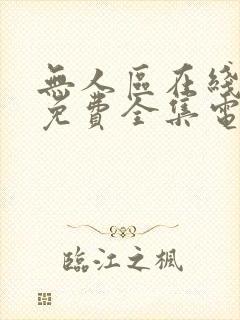 無人區在綫
免費全集電
臨江之楓